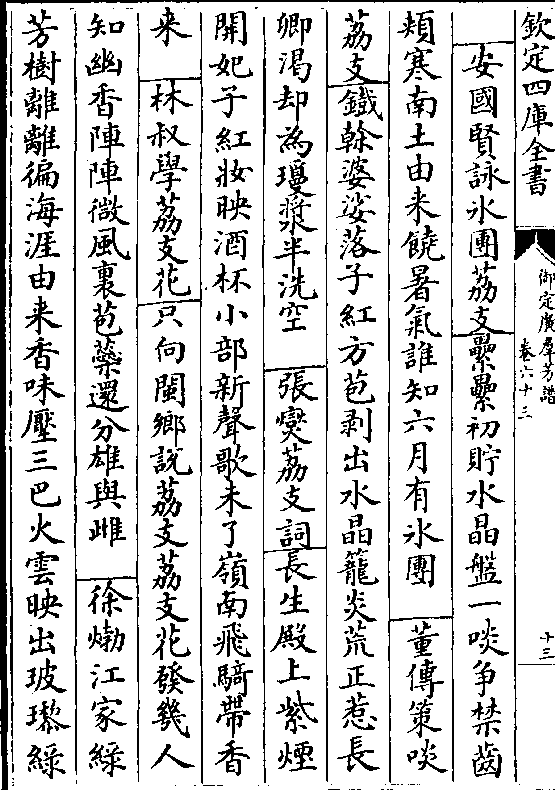 欽定四庫全書
御定廣羣芳譜
卷六十三
十三
安國賢詠氷團荔支纍纍初貯水晶盤一啖争禁齒
頰寒南土由来饒暑氣誰知六月有氷團 董傳策啖
荔支鐵榦婆娑落子紅方苞剥出水晶籠炎荒正惹長
卿渴却為瓊漿半洗空 張燮荔支詞長生殿上紫煙
開妃子紅妝映酒杯小部新聲歌未了嶺南飛騎帶香
来 林叔學荔支花只向閩鄉說荔支荔支花發幾人
知幽香陣陣微風裏苞蘂還分雄與雌 徐𤊹江家綠
芳樹離離徧海涯由来香味壓三巴火雲映出玻瓈綠